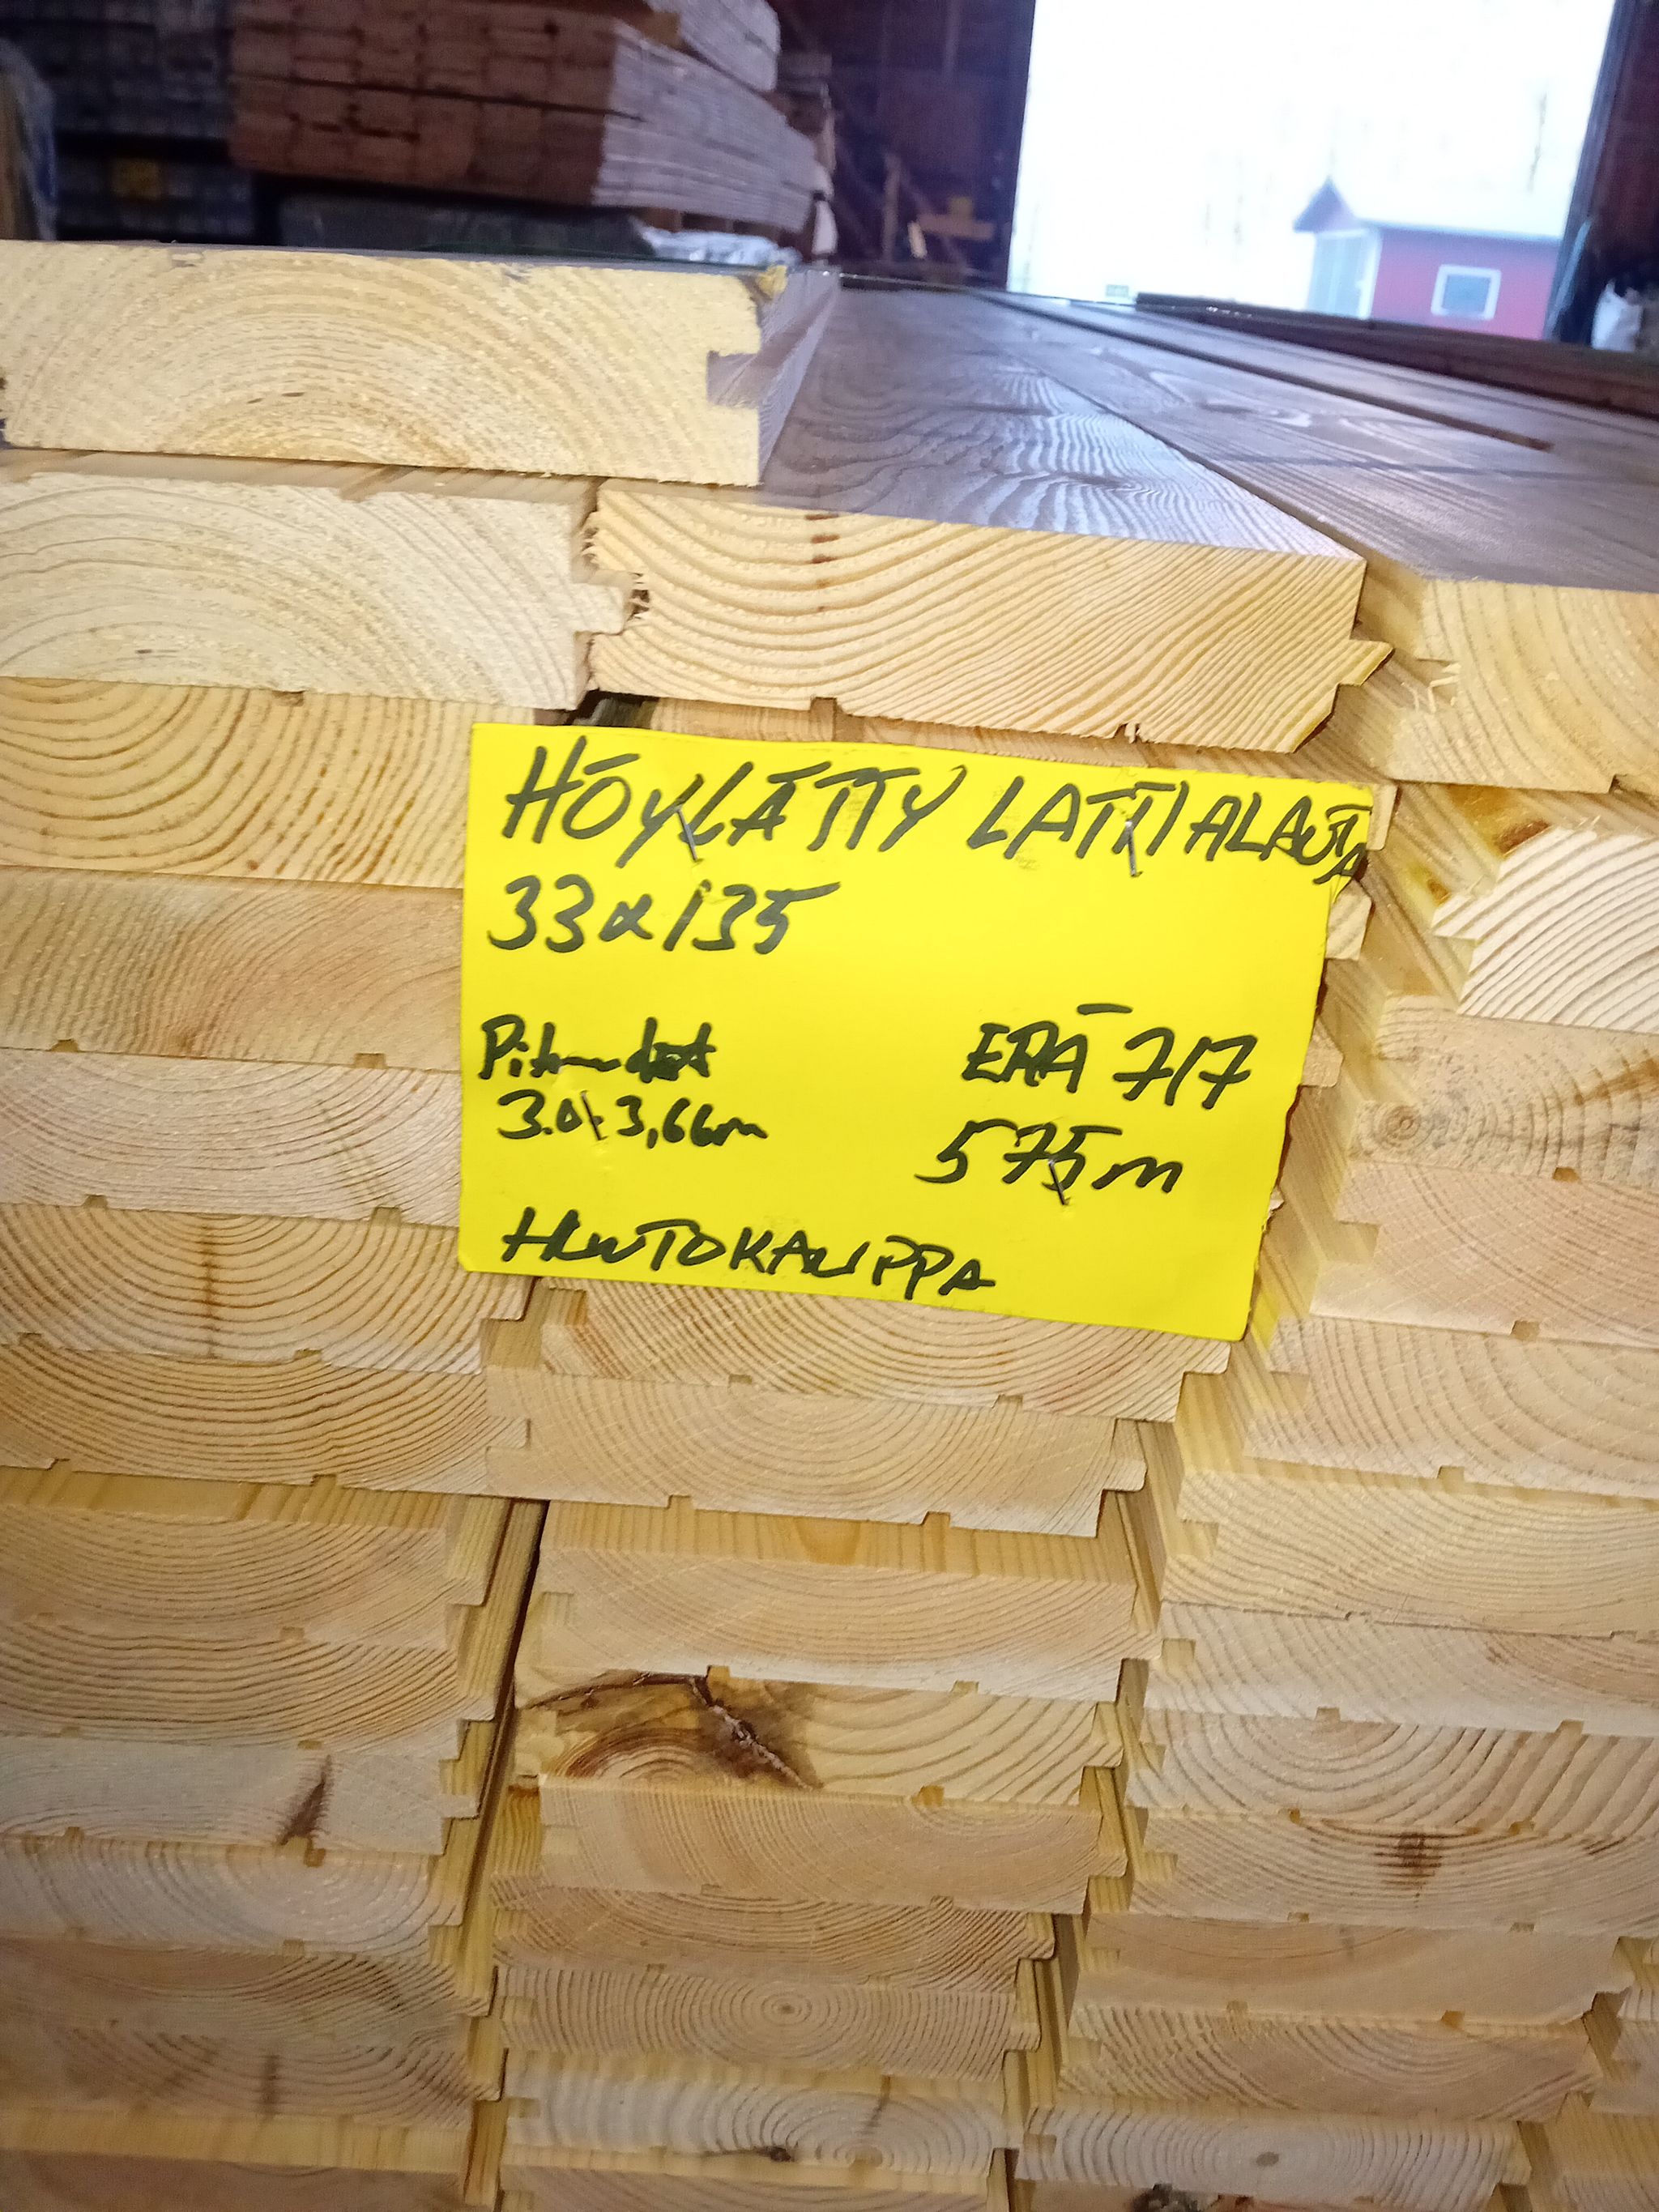 HÖYLÄTTY LATTIALAUTA
33x135
Pituudet
3.0-3,66m
ERÄ 717
575m
HUUTOKAUPPA